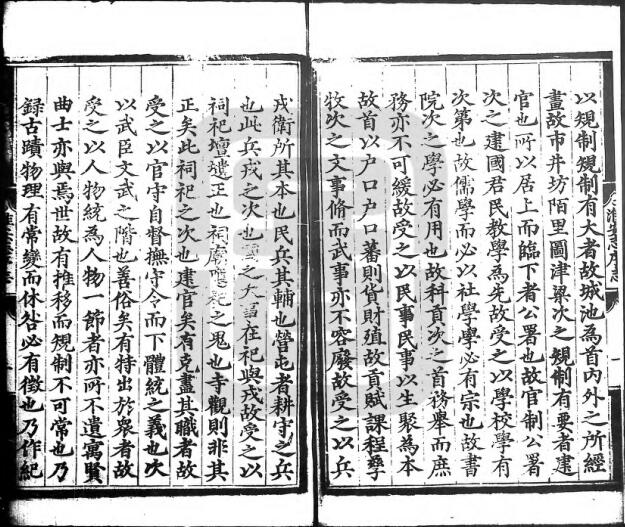 以規制規制有大者故城池為首内外之所經
畫故市井坊陌里圖津梁次之規制有要者建
官也所以居上而臨下者公署也故官制公署
次之建國君民教學為先故受之以學校學有
次第也故儒學而必以社學學必有宗也故書
院次之學必有用也故科貢次之首務舉而庶
務亦不可緩故受之以民事民事以生聚為本
故首以户口户口蕃則貨財殖故貢賦課程
牧次之文事脩而武事亦不容廢故受之以兵
戎衛所其本也民兵其輔也營屯者耕守之兵
也此兵戎之次也國之大事在祀與戎故受之以
祠祀壇壝正也祠廟應祀之鬼也寺觀則非其
正矣此祠祀之次也建官矣有克盡其職者故
受之以官守自督撫守令而下體統之義也次
以武臣文武之階也善俗矣有特出於衆者故
受之以人物統為人物一節者亦所不遺寓賢
曲士亦與焉世故有推移而規制不可常也乃
録古蹟物理有常變而休咎必有徵也乃作紀